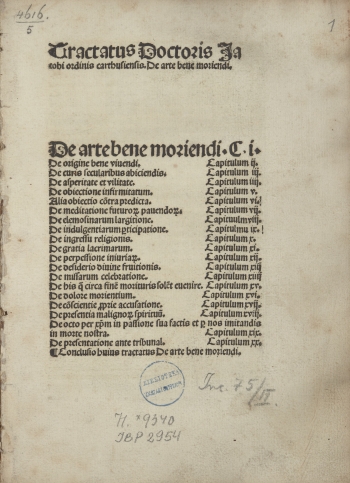 4616.
5
1
Tractatus Doctoris Ja
cobi ordinis carthusiensis. De arte bene moriendi.
De arte bene moriendi. C. i.
De origine bene viuendi. Capitulum ij.
De curis secularibus abiciendis. Capitulum iij.
De asperitate et vilitate. Capitulum iiij.
De obiectione infirmitatum. Capitulum v.
Alia obiectio cōtra predicta. Capitulum vi.
De meditatione futuroꝝ pauendoꝝ. Capitulum vij.
De elemosinarum largitione. Capitulum viij.
De indulgentiarum ꝑticipatione. Capitulum ix.
De ingressu religionis. Capitulum x.
De gratia lacrimarum. Capitulum xi.
De perpessione iniuriaꝝ. Capitulum xij.
De desiderio diuine fruitionis. Capitulum xiij
De missarum celebratione. Capitulum xiiij
De his q̄ circa finē morituris solēt euenire. Capitulum xv.
De dolore morientium. Capitulum xvi.
De cōscientie ꝓprie accusatione. Capitulum xvij.
De presentia malignoꝝ spirituū. Capitulum xviij.
De octo per xp̄m in passione sua factis et ꝑ nos imitandis
in morte nostra. Capitulum xix.
De presentatione ante tribunal. Capitulum xx.
¶ Conclusio huius tractatus De arte bene moriendi.
Inc. 75/IV.
N. *9340
IBP 2954